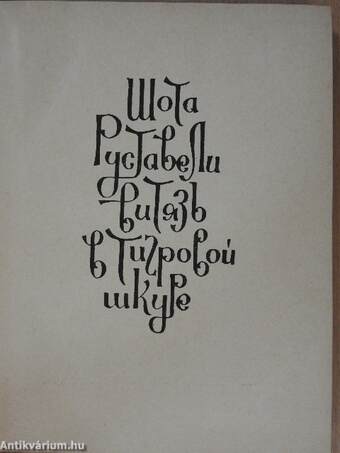 Шота
Руставели
витязь
в тигровой
шкуре
Antikvárium.hu